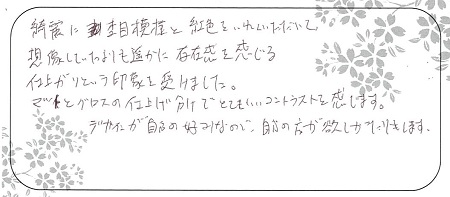 綺麗に杢目模様と紅色をいれていただいて、
想像していたよりも遥かに存在感を感じる
仕上がりという印象を受けました。
マットとグロスの仕上げ分けでとてもいいコントラストを感じます。
デザインが自分の好みなので、自分の方が欲しかったりもします。